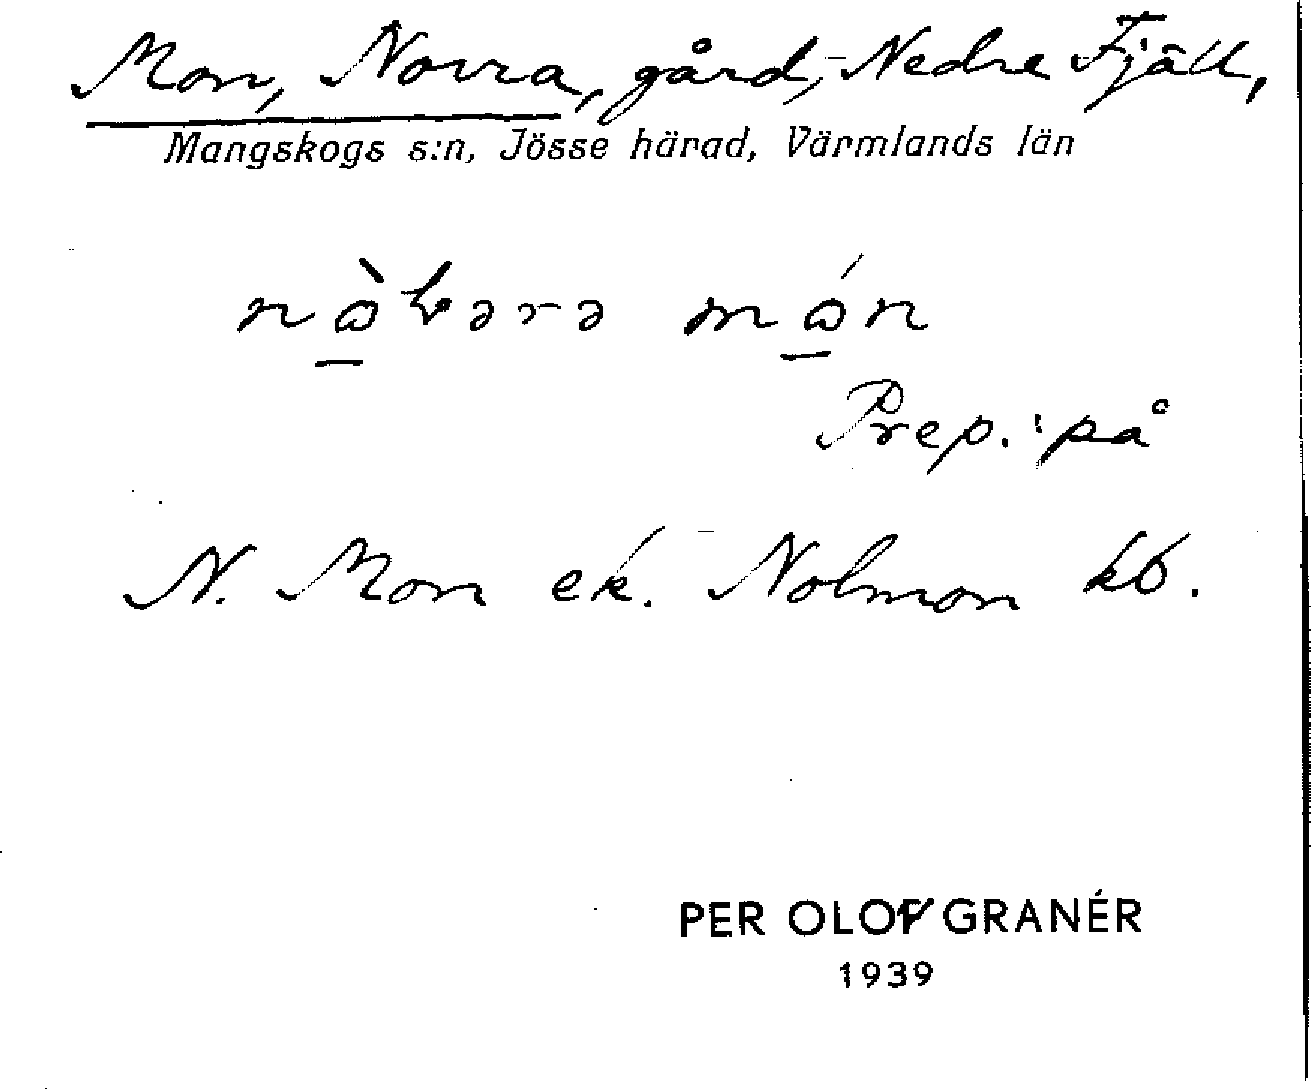 Mon, Norra, gård, Nedre Fjäll,
Mangskogs s:n, Jösse härad, Värmlands län
Prep.: på
N. Mon ek. Nolmon kb.
PER OLOF GRANÉR
1939